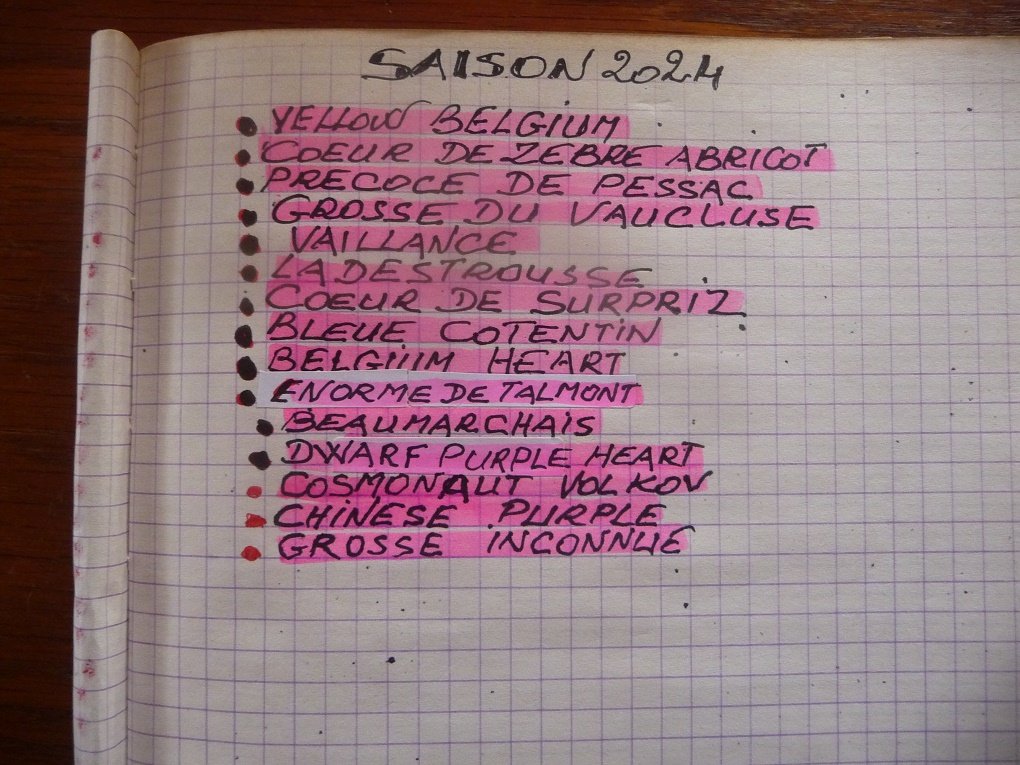 SAISON 2024
YELLOW BELGIUM
COEUR DE ZEBRE ABRICOT
PRECOCE DE PESSAC
GROSSE DU VAUCLUSE
VAILLANCE
LA DESTROUSSE
COEUR DE SURPRIZ
BLEUE COTENTIN
BELGIUM HEART
ENORME DE TALMONT
BEAUMARCHAIS
DWARF PURPLE HEART
COSMONAUT VOLKOV
CHINESE PURPLE
GROSSE INCONNUE